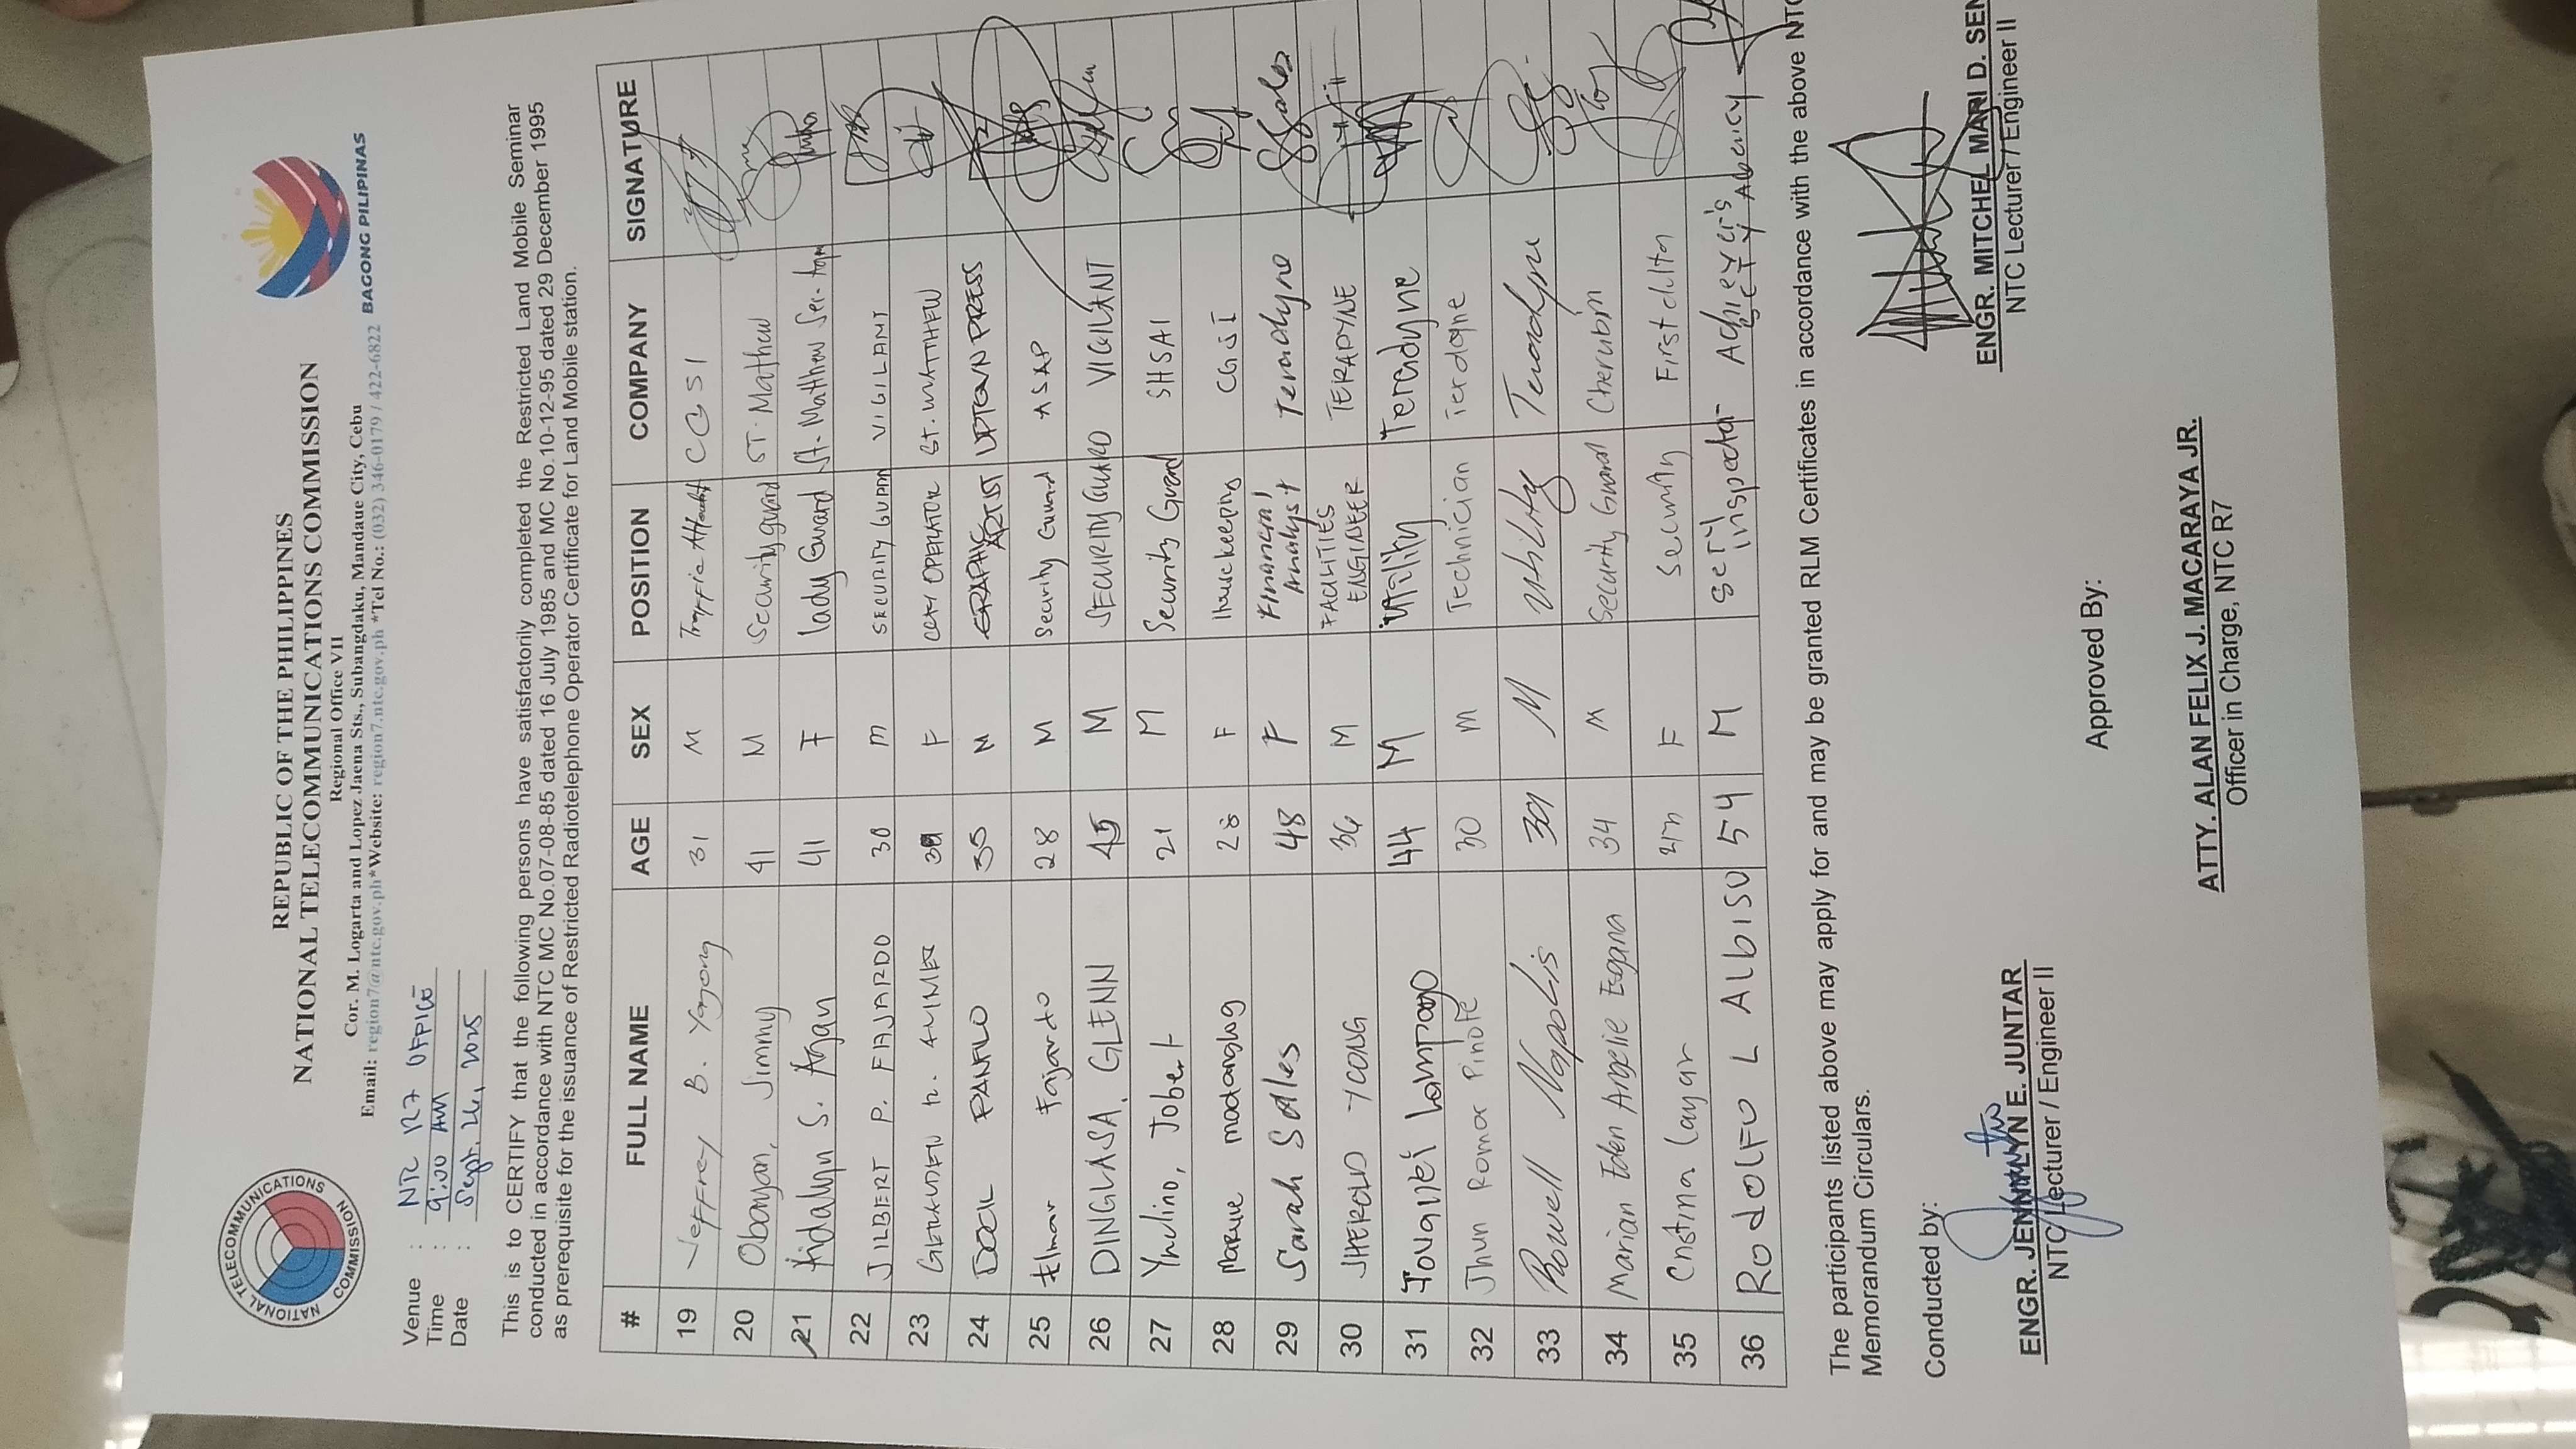 REPUBLIC OF THE PHILIPPINES
NATIONAL TELECOMMUNICATIONS COMMISSION
Regional Office VII
Cor. M. Logarta and Lopez Jaena Sts., Subangdaku, Mandaue City, Cebu
Email: region7@ntc.gov.ph*Website: region7.ntc.gov.ph *Tel No.: (032) 346-0179 / 422-6822
NATIONAL TELECOMMUNICATIONS COMMISSION
BAGONG PILIPINAS
Venue : NTC R7 OFFICE
Time : 9:00 AM
Date : Sept. 26, 2025
This is to CERTIFY that the following persons have satisfactorily completed the Restricted Land Mobile Seminar
conducted in accordance with NTC MC No.07-08-85 dated 16 July 1985 and MC No.10-12-95 dated 29 December 1995
as prerequisite for the issuance of Restricted Radiotelephone Operator Certificate for Land Mobile station.
# FULL NAME AGE SEX POSITION COMPANY SIGNATURE
19 Jeffrey B. Yagong 31 M CGSI
20 Obanyan, Jimmy 41 M Security guard ST. Mathew
21 S. Agan 41 F lady Guard St. Matthew Sec.
22 JILBERT P. FAJARDO 30 M SECURITY GUARD VIGILANT
23 F CCTV OPERATOR ST. MATTHEW
24 PANFILO 35 M GRAPHIC ARTIST UPTOWN PRESS
25 Elmar Fajardo 28 M Security Guard ASAP
26 DINGLASA, GLENN 45 M SECURITY GUARD VIGILANT
27 Ynclino, Jobert 21 M Security Guard SHSAI
28 28 F Housekeeping CGSI
29 Sarah Sales 48 F Financial Analyst Teradyne SSales
30 JHEROLD YCONG 36 M FACILITIES ENGINEER TERADYNE
31 Lampago 44 M Utility Teradyne
32 Jhun Romar Pinote 30 M Technician Terdqne
33 Rowell Napolis M Utility Teradyne
34 Marian Eden Angelie Esgana 34 M Security Guard Cherubim
35 Cristina Layar F Security First delta
36 RodolFo L Albiso 54 M Sety inspector Achiever's Scty Abency
The participants listed above may apply for and may be granted RLM Certificates in accordance with the above NTC
Memorandum Circulars.
Conducted by:
ENGR. JENNILYN E. JUNTAR
NTC Lecturer / Engineer II
ENGR. MITCHEL MARI D. SEN
NTC Lecturer / Engineer II
Approved By:
ATTY. ALAN FELIX J. MACARAYA JR.
Officer in Charge, NTC R7